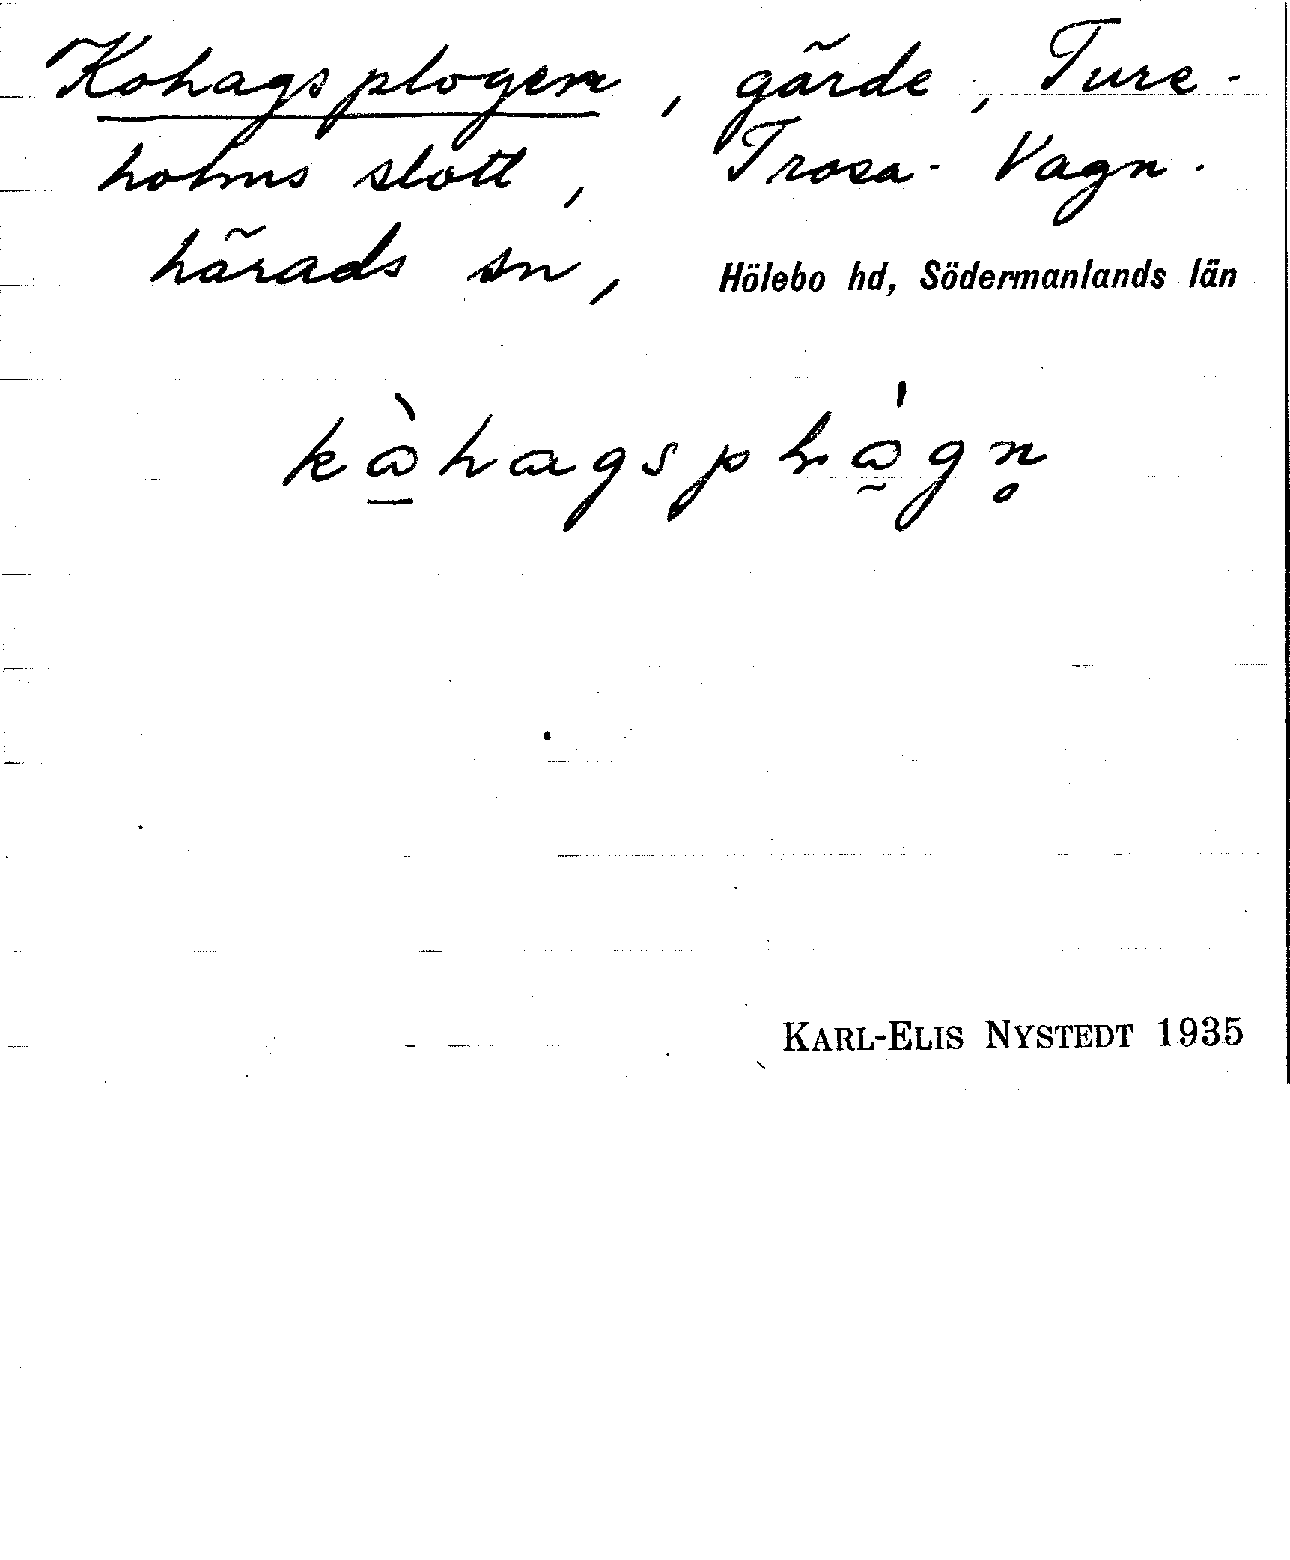 Kohagsplogen, gärde, Ture-
holms slott, Trosa-Vagn-
härads sn, Hölebo hd, Södermanlands län
kò̱hagspló̰gn̥
KARL-ELIS NYSTEDT 1935